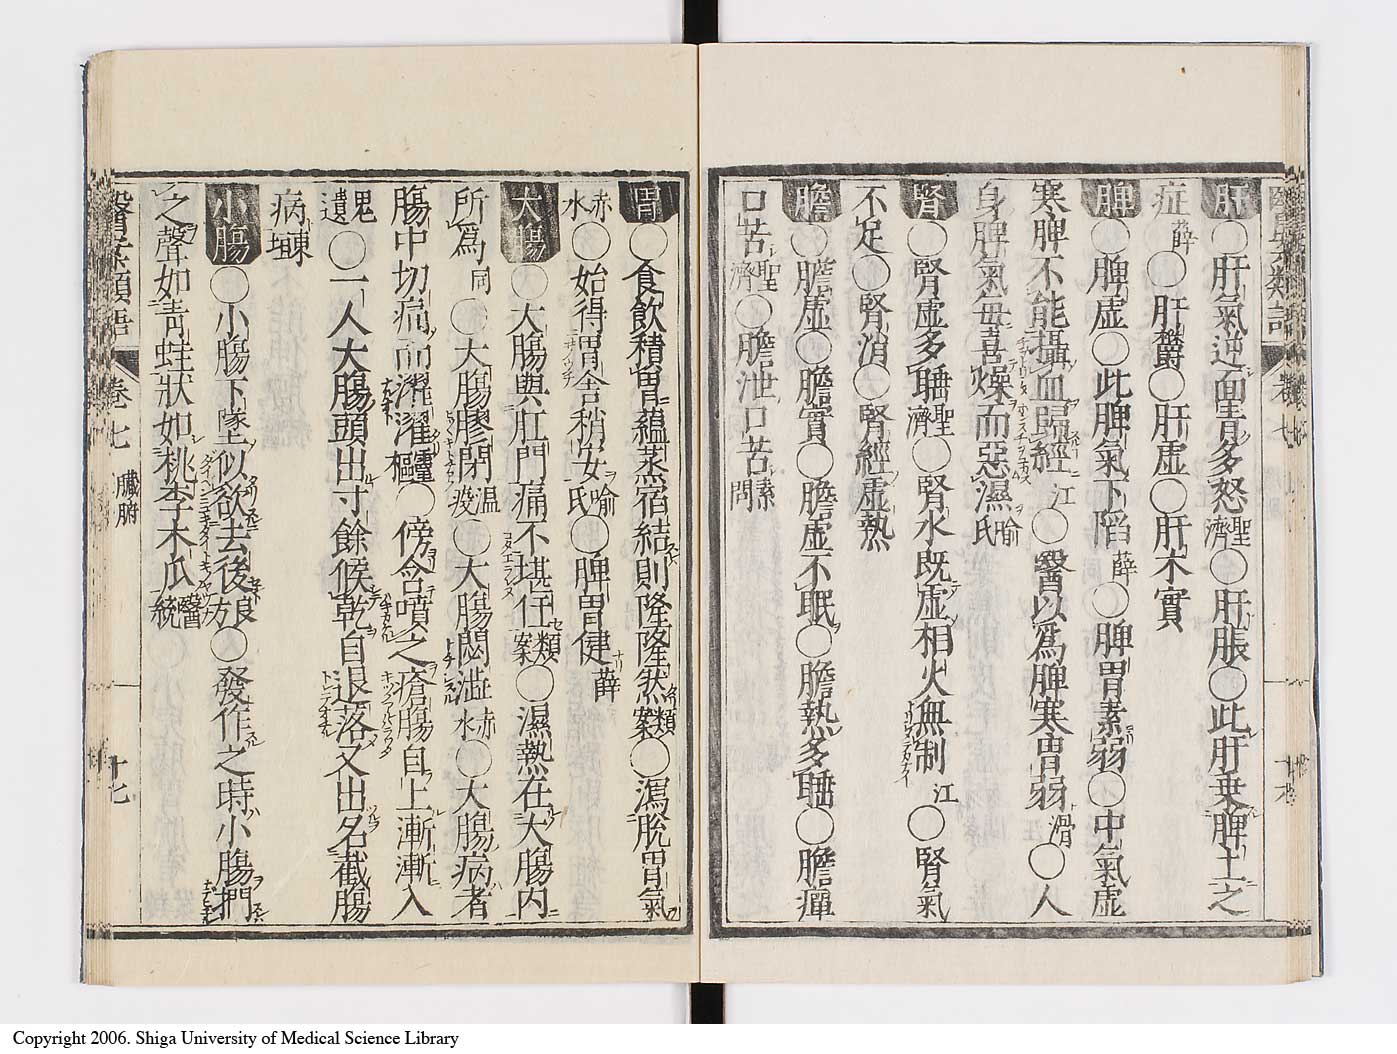 肝○肝氣逆面青多怒聖濟○肝脹○此肝乗脾土之
症薛○肝欝○肝虚○肝木實
脾○脾虚○此脾氣下陷薛○脾胃素弱○中氣虚
寒脾不能攝血歸經江○醫以爲脾寒胃弱滑○人
身脾氣毎喜燥而惡濕喻氏
腎○腎虚多聖濟○腎水既虚相火無制江○腎氣
不足○腎消○腎經虚熱
膽○膽虚○膽實○膽虚不眠○膽熱多○膽癉
口苦聖濟○膽泄口苦素問
胃○食飲積胃蘊蒸宿結則隆隆然類案○瀉脱胃氣
赤水○始得胃舍稍安喻氏○脾胃健薛
大腸○大腸與肛門痛不堪任類案○濕熱在大腸内
所爲同○大腸膠閉温疫○大腸閟澁赤水○大腸病者
腸中切痛而濯濯靈樞○傍含噴之瘡腸自上漸漸入
鬼遺○一人大腸頭出寸餘候乾自退落又出名截腸
病東垣
小腸○小腸下墜似欲去後良方○發作之時小腸捫
之聲如青蛙狀如桃李木瓜醫統
醫案類語
卷七 臟腑
十七
Copyright 2006. Shiga University of Medical Science Library